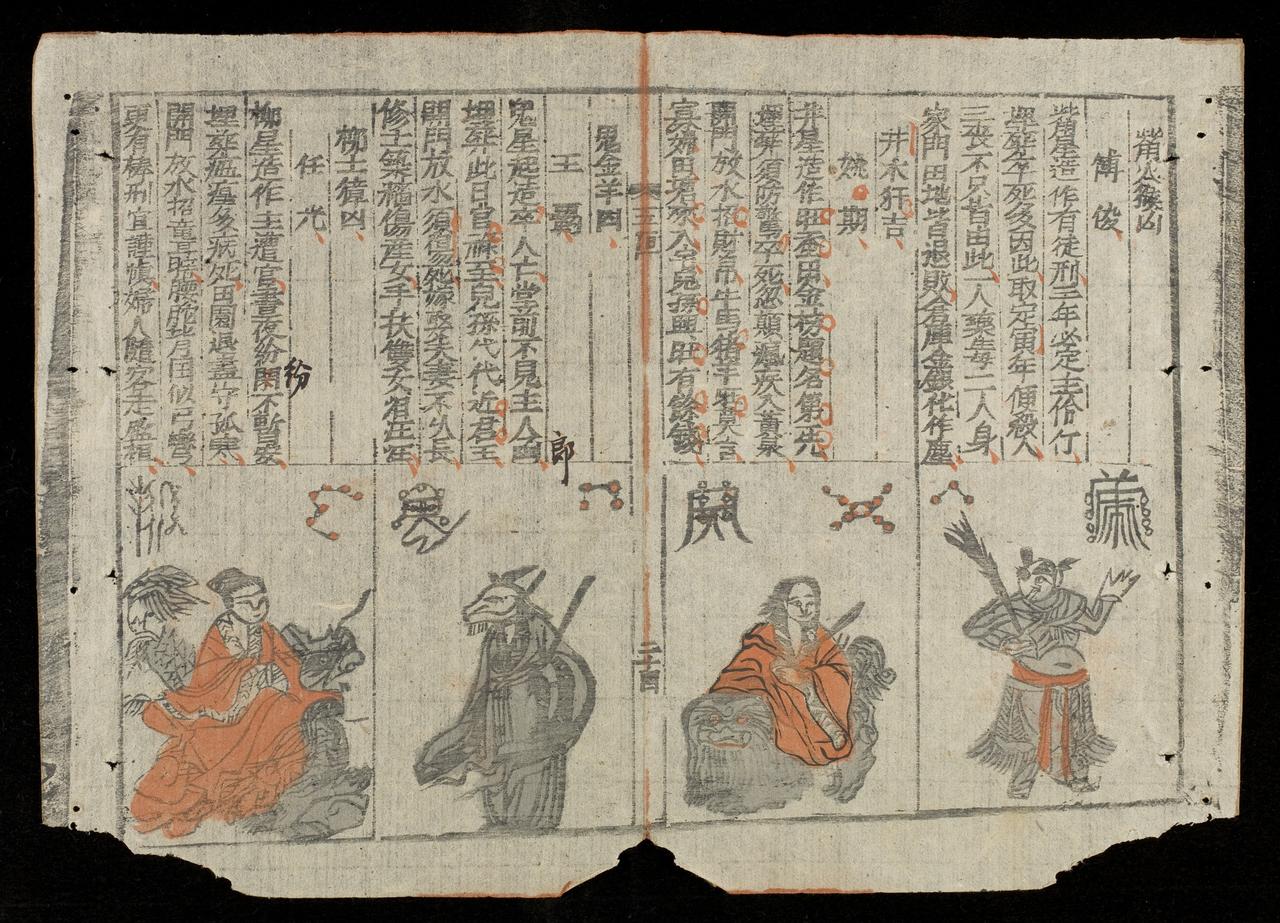 觜火猴凶
傅俊
觜星造作有徒刑三年必定主伶仃
埋葬卒死多因此取定寅年便殺人
三喪不只皆由此一人藥毒二人身
家門田地皆退敗倉庫金銀化作塵
井木犴吉
姚期
井星造作旺蚕田金榜題名第一先
埋葬須防驚卒死忽顛瘟疾入黃泉
開門放水招財帛牛馬猪羊旺莫言
寡婦田塘來入宅兒孫興旺有餘錢
五
二十四
鬼金羊凶
王霸
鬼星起造卒人亡堂前不見主人郎
埋葬此日官祿至兒孫代代近君王
開門放水須傷死嫁娶夫妻不久長
修土築牆傷產女手扶雙女淚汪汪
郎
柳土獐凶
任光
柳星造作主遭官晝夜紛開不暫安
埋葬瘟瘟多病死田園退盡守孤寒
開門放水招聾瞎腰駝背曲似弓彎
更有棒刑宜謹慎婦人隨客走盤桓
紛